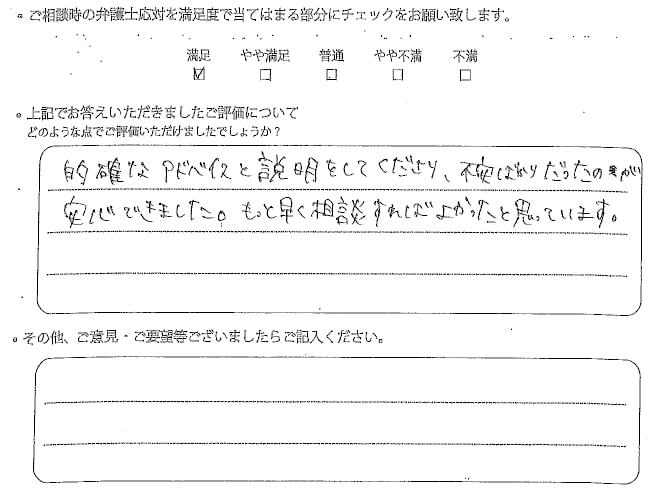 。ご相談時の弁護士応対を満足度で当てはまる部分にチェックをお願い致します。
満足 やや満足 普通 やや不満 不満
☑ □ □ □ □
。上記でお答えいただきましたご評価について
どのような点でご評価いただけましたでしょうか?
的確なアドバイスと説明をしてくださり、不安ばかりだったのが
安心できました。もっと早く相談すればよかったと思っています。
。その他、ご意見・ご要望等ございましたらご記入ください。